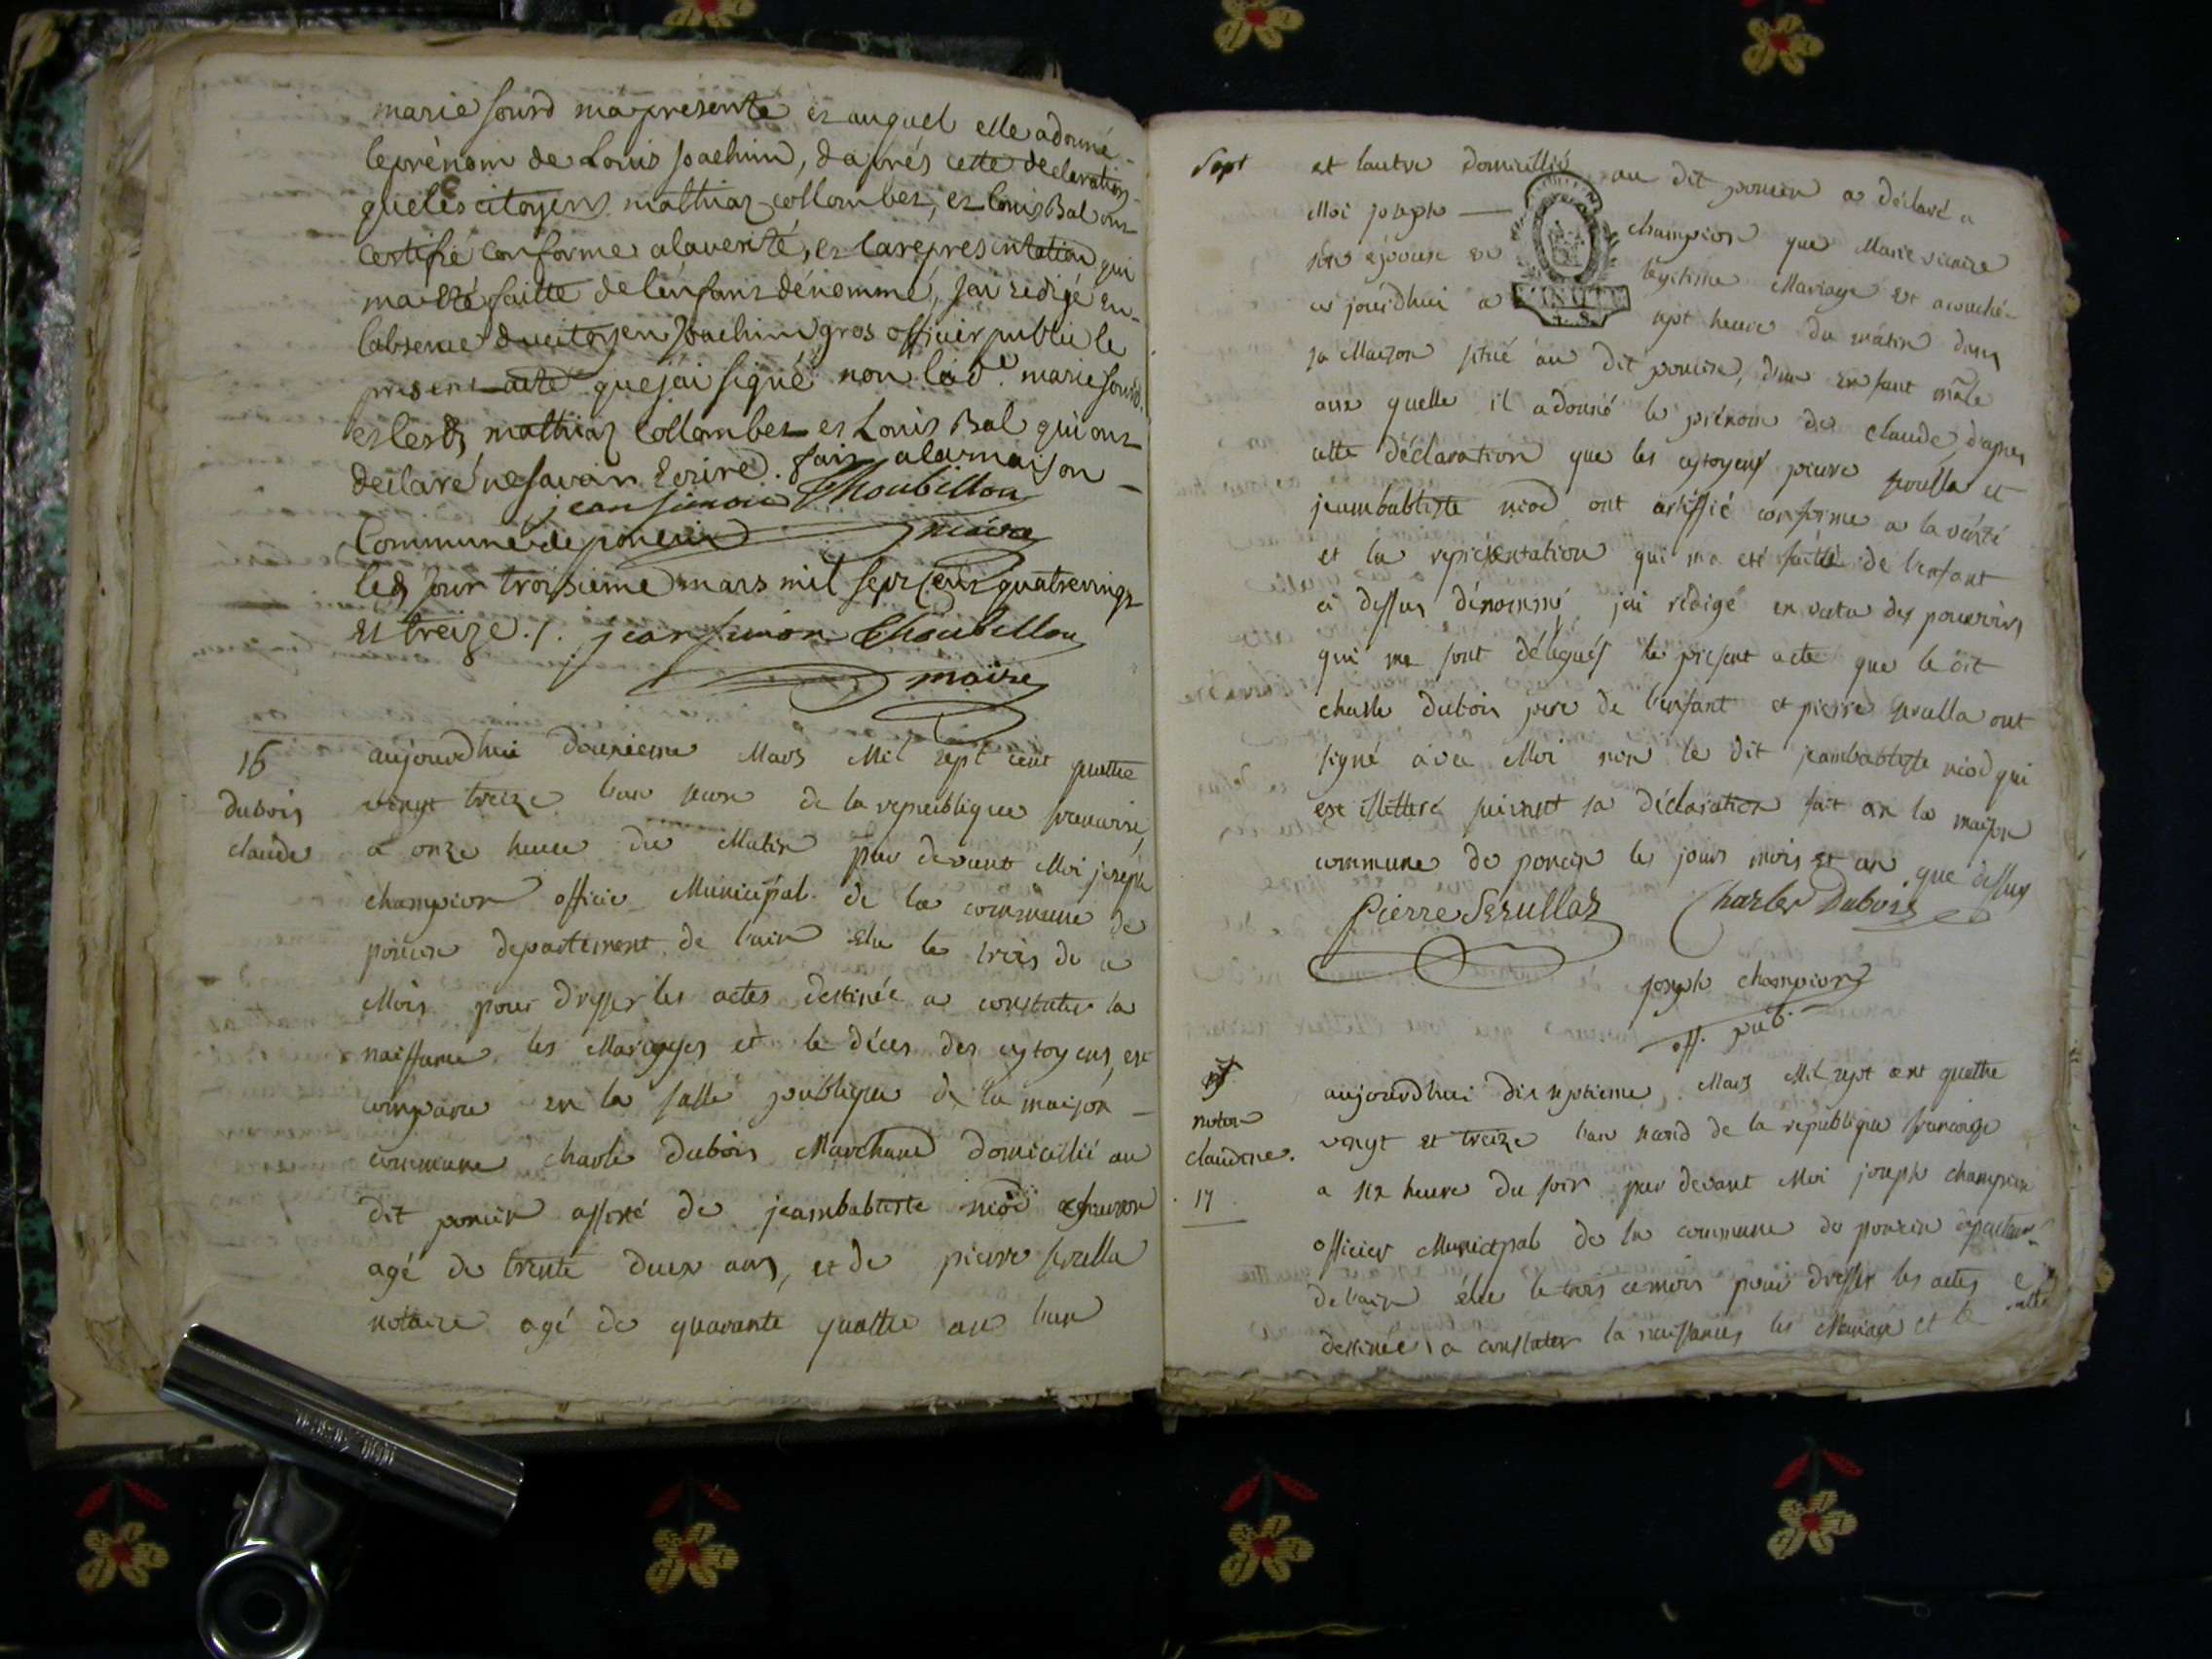 marie sourd ma presenté et auquel elle a donné
le prénom de Louis joachim, daprés cette declaration
que les citoyens mathiaz collombet, et louis Bal ont
certifié conforme a la verité, et la representation qui
ma été faitte de lenfant dénommé, jai redigé en
labsence du citoyen joachim gros officier public le
present acte que jai signé non lad.e marie sourd.
et lesd. mathiaz Collombet et Louis Bal qui ont
declaré ne savoir Ecrire. fait a la maison
jean simon Thoubillon
Commune de poncin maire
led. jour troisieme mars mil sept cent quatrevingt
et treize ./. jean simon Thoubillon
maire
16
dubois
claude
aujourdhui douzieme Mars Mil sept cent quattre
vingt treize l'an second de la republique francaise,
a onze heure du Matin par devant Moi joseph
champion officier Municipal de la commune de
poncin departement de l'ain élu le trois de ce
Mois pour dresser les actes destinée a constater la
naissance les Mariages et le décès des cytoyens, est
comparu en la salle publique de la maison
commune charle dubois Marchand domicillié au
dit poncin assisté de jeambabtiste niod
agé de trente deux ans, et de pierre serulla
notaire agé de quarante quattre an l'un
sept
et lautre domicillié au dit poncin a déclaré a
Moi joseph champion que Marie
son épouse en legitime Mariage est acouché
ce jourdhui a sept heure du matin dans
sa Maison situé au dit poncin, d'un enfant mâle
aux quelle il a donné le prénom de claude, d'apres
cette déclaration que les cytoyens pierre serulla et
jeambabtiste niod ont certiffié conforme a la vérité
et la représentation qui ma eté faitte de l'enfant
ci dessus dénommé, jai rédigé en vertu des pouvoirs
qui me sont délégués le présent acte que le dit
charle dubois pere de l'enfant et pierre serulla ont
signé avec Moi non le dit jeambabtiste niod qui
est illettéré suivant sa déclaration fait en la maison
commune de poncin les jours mois et an que dessus
Pierre Serullaz Charles Dubois
joseph champion
off. pub.
claudine.
17
aujourdhui dix septieme Mars Mil sept cent quattre
vingt et treize l'an second de la republique francaise
a six heure du soir par devant Moi joseph champion
officier Municipal de la commune de poncin departement
de l'ain élu le trois ce mois pour dresser les actes
destinée a constater la naissances les Mariage et le